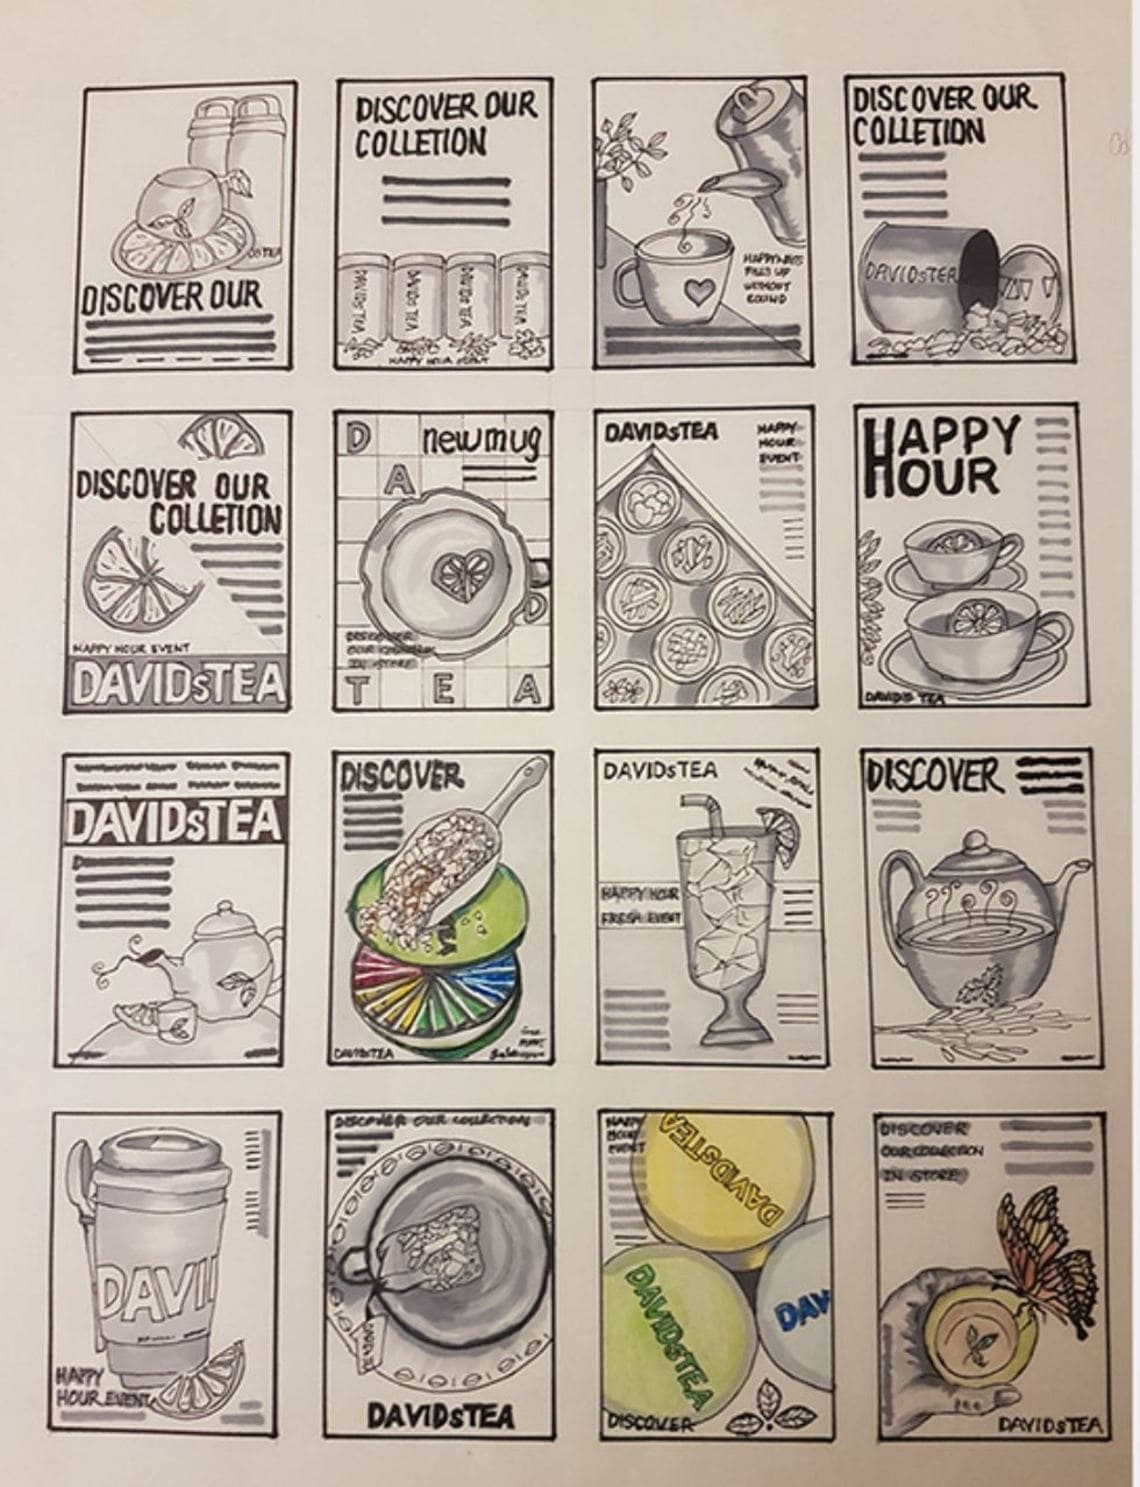 DISCOVER OUR
DISCOVER OUR
COLLETION
DAVIDsTEA
DAVIDsTEA
DAVIDsTEA
DAVIDsTEA
HAPPY HOUR EVENT
HAPPYNESS
FILLS UP
WITHOUT
DISCOVER OUR
COLLETION
DAVIDsTEA
DISCOVER OUR
COLLETION
HAPPY HOUR EVENT
DAVIDsTEA
D
new mug
A
D
DISCOVER
IN STORE
T E A
DAVIDsTEA
HAPPY
HOUR
EVENT
HAPPY
HOUR
DAVIDS TEA
DAVIDsTEA
DISCOVER
DAVIDsTEA
DAVIDsTEA
HAPPY HOUR
FRESH EVENT
DISCOVER
DAVI
HAPPY
HOUR EVENT
DISCOVER OUR COLLECTION
DAVIDsTEA
HAPPY
HOUR
EVENT
DAVIDsTEA
DAVIDsTEA
DAV
DISCOVER
DISCOVER
OUR COLLECTION
IN STORE
DAVIDsTEA